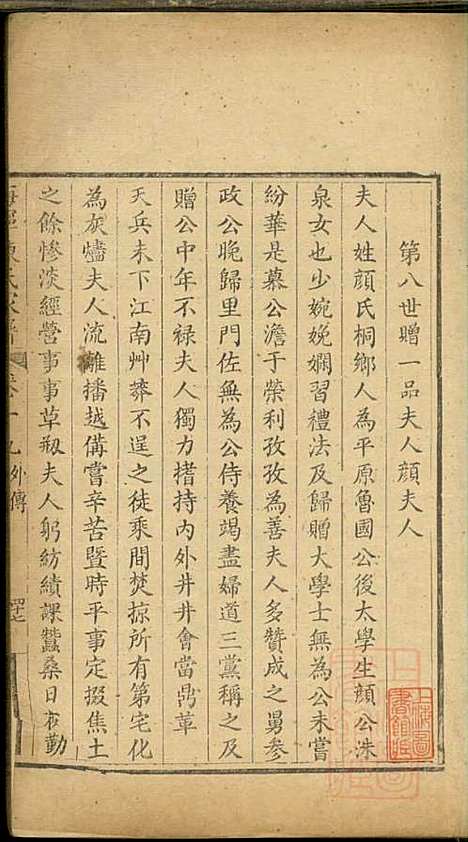 第八世贈一品夫人顔夫人
夫人姓顔氏桐鄉人為平原魯國公後太學生顔公洙
泉女也少婉娩嫻習禮法及歸贈大學士無為公未嘗
紛華是慕公澹于榮利孜孜為善夫人多贊成之舅參
政公晚歸里門佐無為公侍養竭盡婦道三黨稱之及
贈公中年不祿夫人獨力搘持內外井井會當鼎革
天兵未下江南艸莽不逞之徒乘間焚掠所有第宅化
為灰燼夫人流離播越備嘗辛苦暨時平事定掇焦土
之餘慘淡經營事事草刱夫人躬紡績課蠶桑日夜勤
海寧陳氏家譜 卷十九外傳
上海圖書館藏